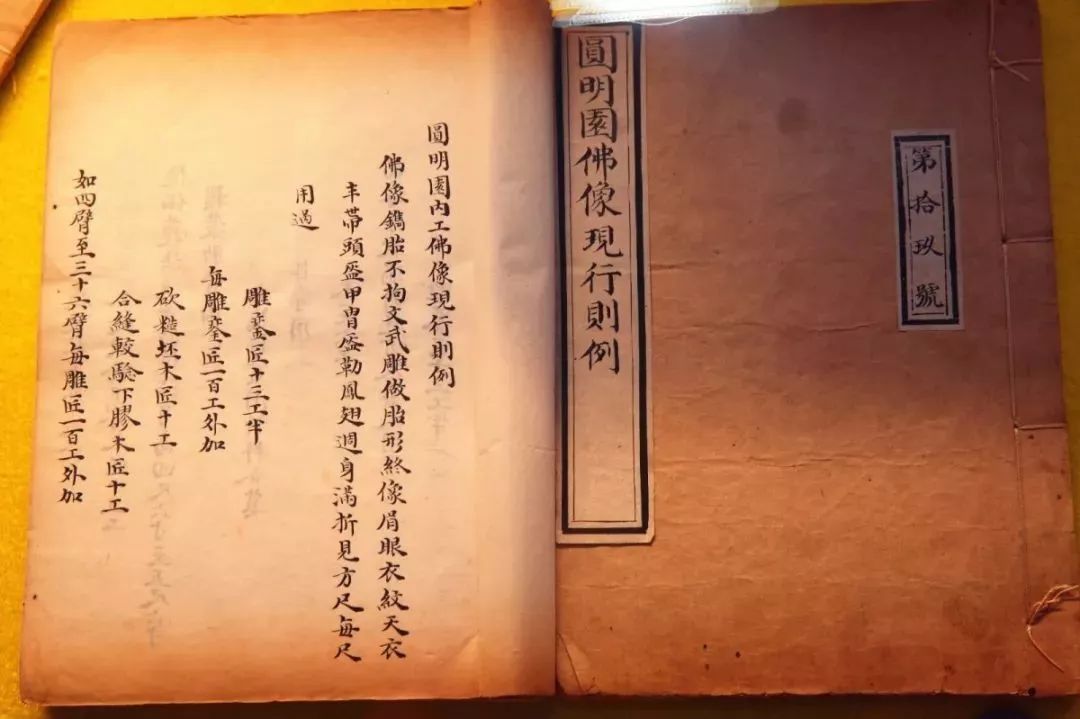 圓明園佛像現行則例
第拾玖號
圓明園內工佛像現行則例
佛像鐫胎不拘文武雕做胎形終像眉眼衣紋天衣
丰帶頭盔甲冑盔勒鳳翅週身滿折見方尺每尺
用過
雕鑾匠十三工半
每雕鑾匠一百工外加
砍糙坯木匠十工
合縫較驗下膠木匠十工
如四臂至三十六臂每雕匠一百工外加